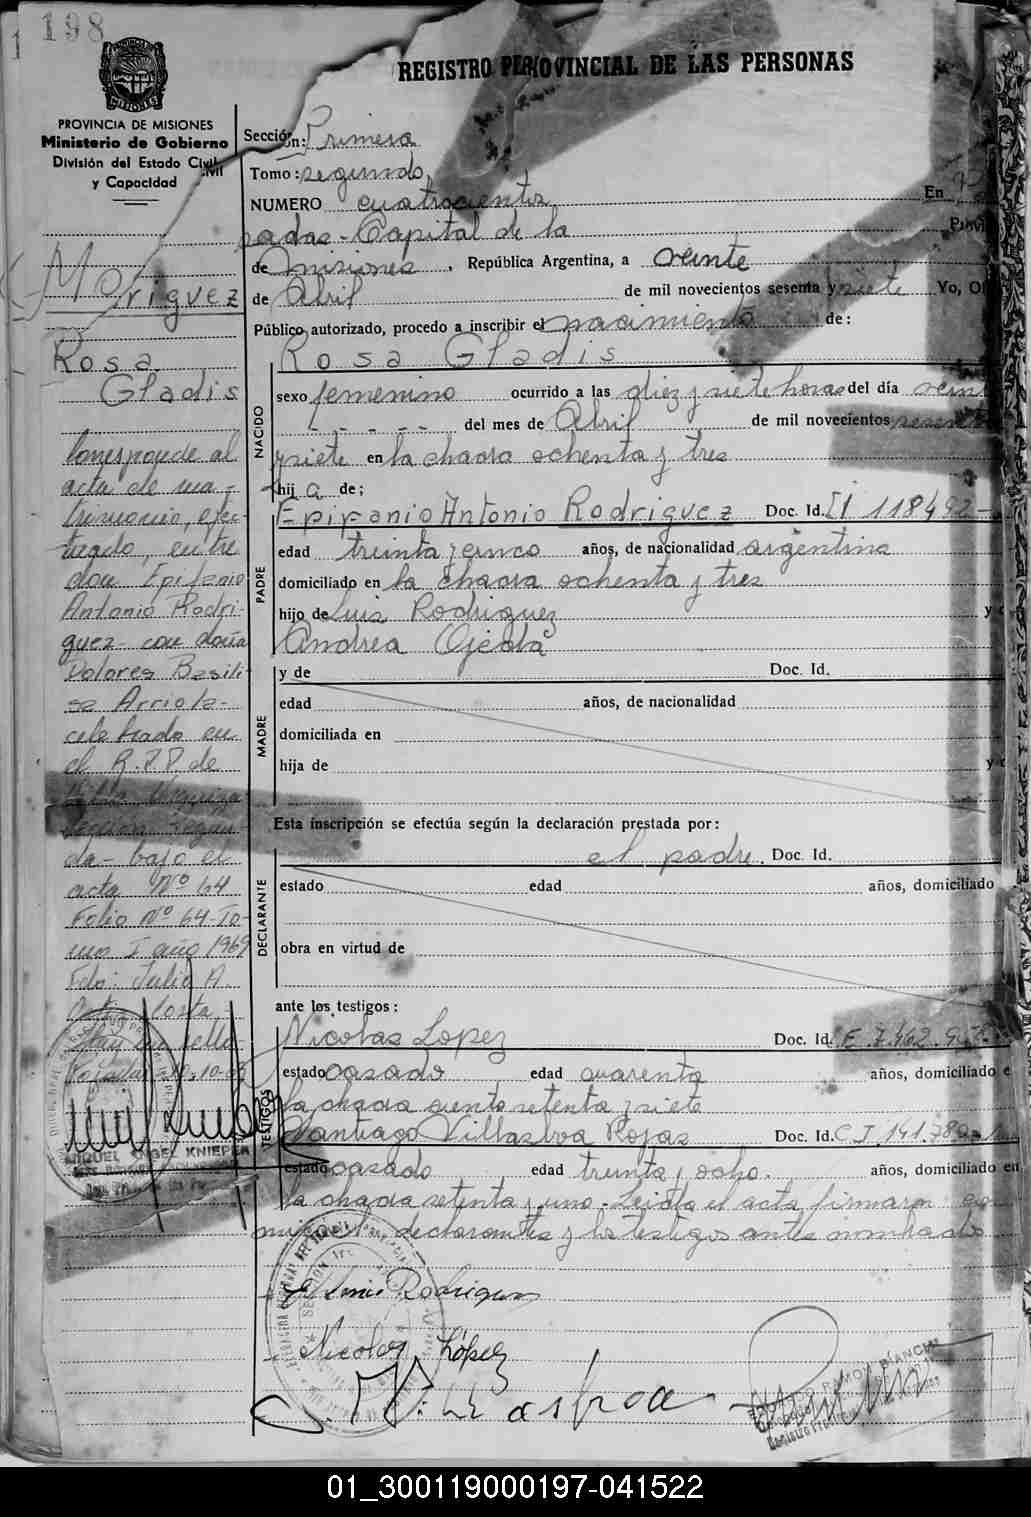 198
REGISTRO PROVINCIAL DE LAS PERSONAS
PROVINCIA DE MISIONES
Ministerio de Gobierno
División del Estado Civil
y Capacidad
Sección: Primera
Tomo: segundo
NUMERO cuatrocientos En
sadas - Capital de la
de misiones, República Argentina, a veinte
de Abril de mil novecientos sesenta y siete Yo, O
Público autorizado, procedo a inscribir el nacimiento de:
Rosa Gladis
riguez
Rosa
Gladis
NACIDO
sexo femenino ocurrido a las diez y siete horas del día vein
- - - - - del mes de Abril de mil novecientos sesenta
y siete en la chacra ochenta y tres
hija de:
PADRE
Epifanio Antonio Rodriguez Doc. Id. CI 118492-
edad treinta y cinco años, de nacionalidad argentina
domiciliado en la chacra ochenta y tres
hijo de Luis Rodriguez y d
Andrea Ojeda
MADRE
y de Doc. Id.
edad años, de nacionalidad
domiciliada en
hija de y d
Esta inscripción se efectúa según la declaración prestada por:
DECLARANTE
el padre. Doc. Id.
estado edad años, domiciliado
obra en virtud de
ante los testigos:
TESTIGOS
Nicolas Lopez Doc. Id. E 7.462
estado casado edad cuarenta años, domiciliado e
la chacra ciento setenta y siete
Santiago Villasboa Rojas Doc. Id. C.I 141.780
estado casado edad treinta y ocho. años, domiciliado en
la chacra setenta y uno - Leida el acta firmaron
declarantes y los testigos antes nombrados
Corresponde al
acta de ma-
trimonio, efec-
tuado, entre
don Epifanio
Antonio Rodri-
guez con doña
Dolores Basili-
sa Arriola-
celebrado en
el R.P.P. de
Villa Urquiza
Sección Segun-
da - bajo el
acta Nº 64
Folio Nº 64-To-
mo I año 1969
Fdo: Julio A.
MIGUEL ANGEL KNIEPER
Rodriguez
Nicolas López
RAMON BIANCHI
01_300119000197-041522